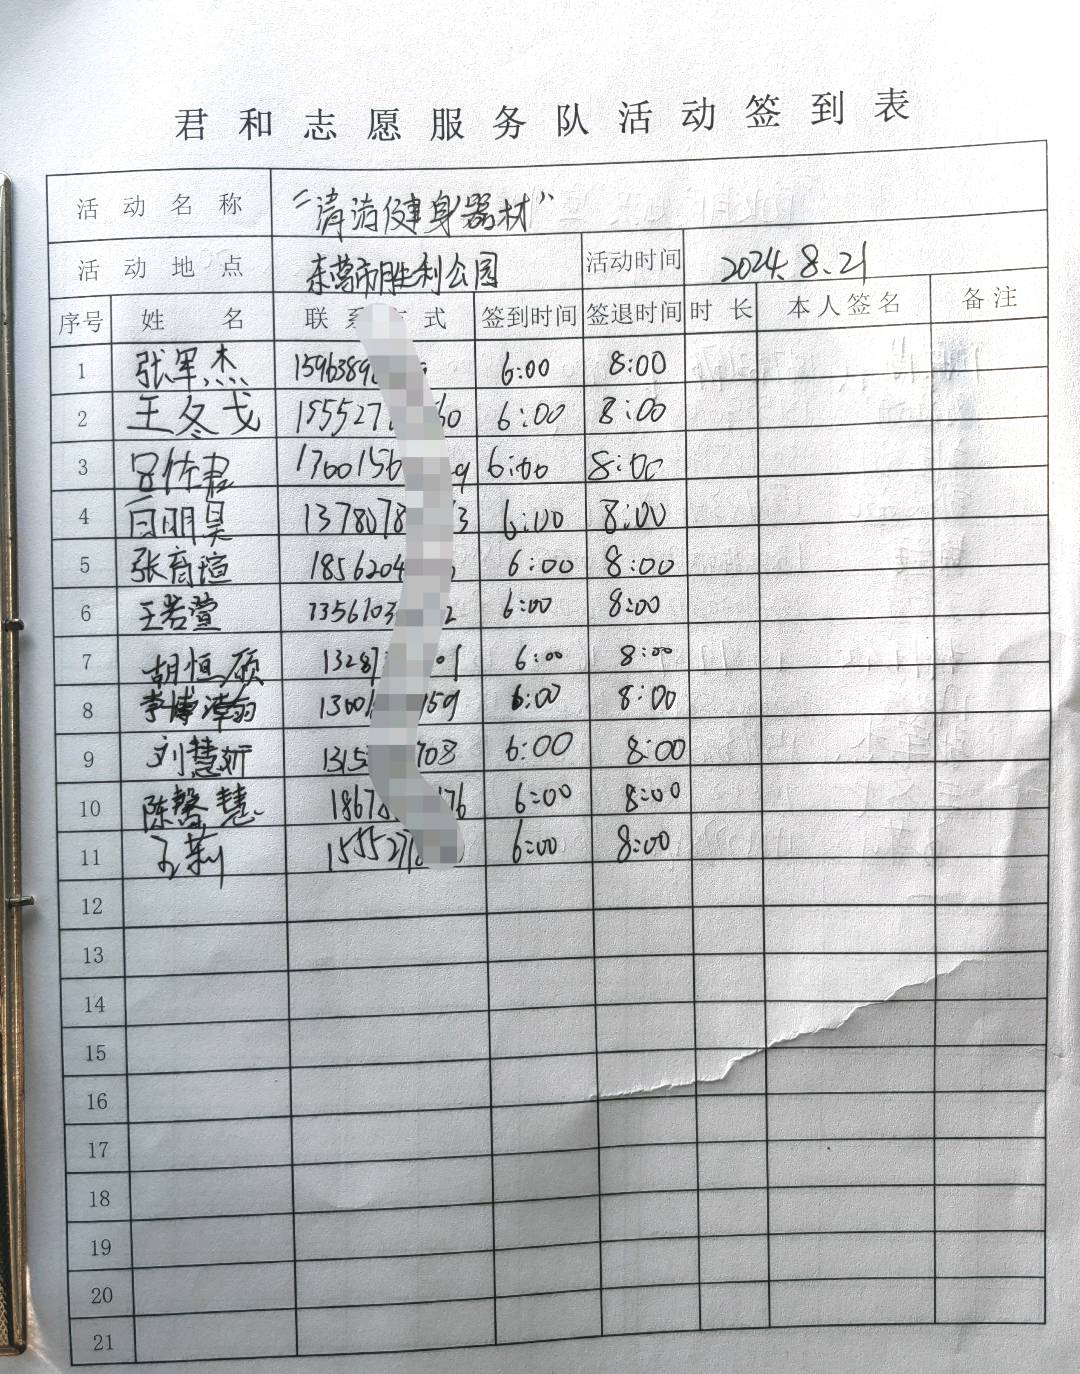 君和志愿服务队活动签到表
活动名称 “清洁健身器材”
活动地点 东营市胜利公园 活动时间 2024.8.21
序号 姓名 联系方式 签到时间 签退时间 时长 本人签名 备注
1 张军杰 1596389 6:00 8:00
2 王冬戈 155527 60 6:00 8:00
3 1300156 9 6:00 8:00
4 白明昊 1378078 3 6:00 8:00
5 张育瑄 1856204 6:00 8:00
6 王若萱 1356103 2 6:00 8:00
7 胡恒硕 1328 01 6:00 8:00
8 李博瀚 1300 159 6:00 8:00
9 刘慧妍 1315 703 6:00 8:00
10 陈馨慧 1867 176 6:00 8:00
11 王莉 155527 6:00 8:00
12
13
14
15
16
17
18
19
20
21